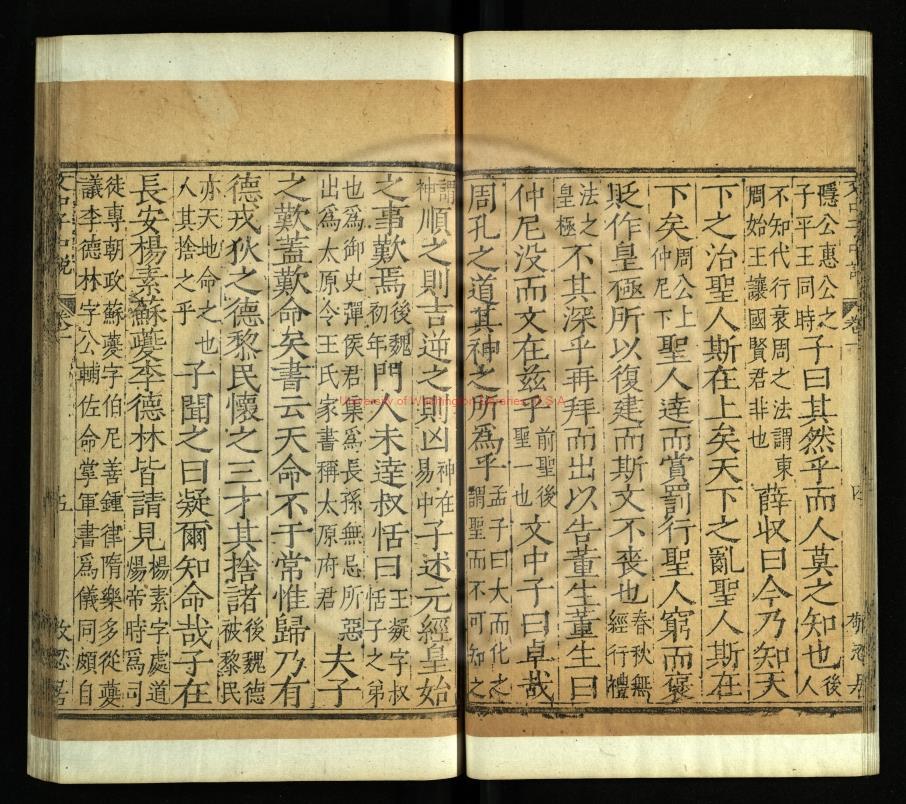 隱公惠公之子平王同時子曰其然乎而人莫之知也後人
不知代行衰周之法謂東周始王讓國賢君非也薛収曰今乃知天
下之治聖人斯在上矣天下之亂聖人斯在
下矣周公上仲尼下聖人逹而賞罰行聖人窮而褒
貶作皇極所以復建而斯文不喪也春秋無經行禮
法之皇極不其深乎再拜而出以告董生董生曰
仲尼没而文在兹乎前聖後聖一也文中子曰卓哉
周孔之道其神之所爲乎孟子曰大而化之謂聖而不可知之
謂神順之則吉逆之則凶神在易中子述元經皇始
之事歎焉後魏初年門人未逹叔恬曰王凝字叔恬子之弟
也爲御史彈侯君集爲長孫無忌所惡出爲太原令王氏家書稱太原府君夫子
之歎蓋歎命矣書云天命不于常惟歸乃有
德戎狄之德黎民懷之三才其捨諸後魏德被黎民
亦天地命之也人其捨之乎子聞之曰凝爾知命哉子在
長安楊素蘇夔李德林皆請見楊素字處道煬帝時爲司
徒專朝政蘇夔字伯尼善鍾律隋樂多從夔議李德林字公輔佐命掌軍書爲儀同頗自
University of Washington Libraries, U.S.A